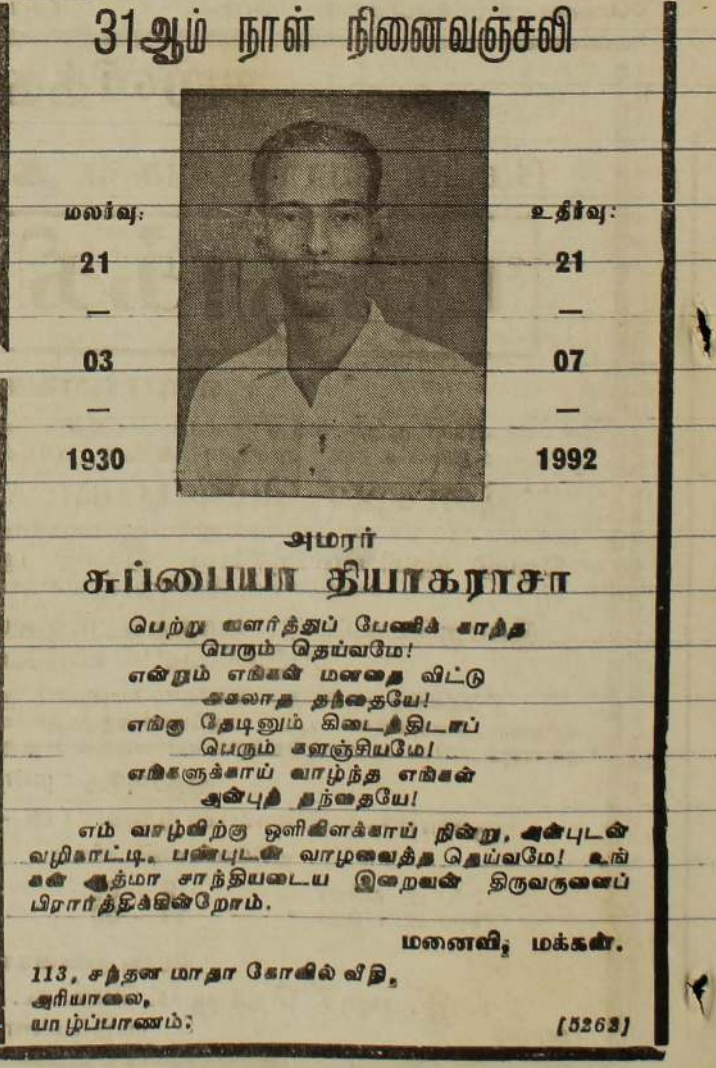 31ஆம் நாள் நினைவஞ்சலி
மலர்வு:
21
—
03
—
1930
உதிர்வு:
21
—
07
—
1992
அமரர்
சுப்பையா தியாகராசா
பெற்று வளர்த்துப் பேணிக் காத்த
பெரும் தெய்வமே!
என்றும் எங்கள் மனதை விட்டு
அகலாத தந்தையே!
எங்கு தேடினும் கிடைத்திடாப்
பெரும் களஞ்சியமே!
எங்களுக்காய் வாழ்ந்த எங்கள்
அன்புத் தந்தையே!
எம் வாழ்விற்கு ஒளிவிளக்காய் நின்று, அன்புடன்
வழிகாட்டி, பண்புடன் வாழவைத்த தெய்வமே! உங்
கள் ஆத்மா சாந்தியடைய இறைவன் திருவருளைப்
பிரார்த்திக்கின்றோம்.
மனைவி, மக்கள்.
113, சந்தன மாதா கோவில் வீதி,
அரியாலை,
யாழ்ப்பாணம்.
[5262]